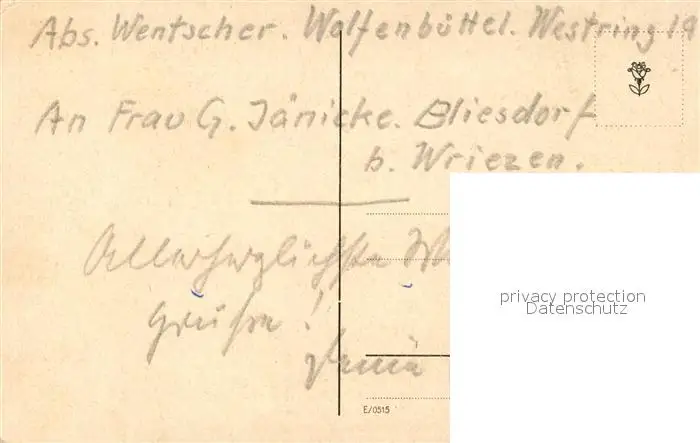 Abs. Wentscher. Wolfenbüttel. Westring 19
An Frau G. Jänicke. Bliesdorf
b. Wriezen.
Allerherzlichste
Grüße!
privacy protection
Datenschutz
E/0515